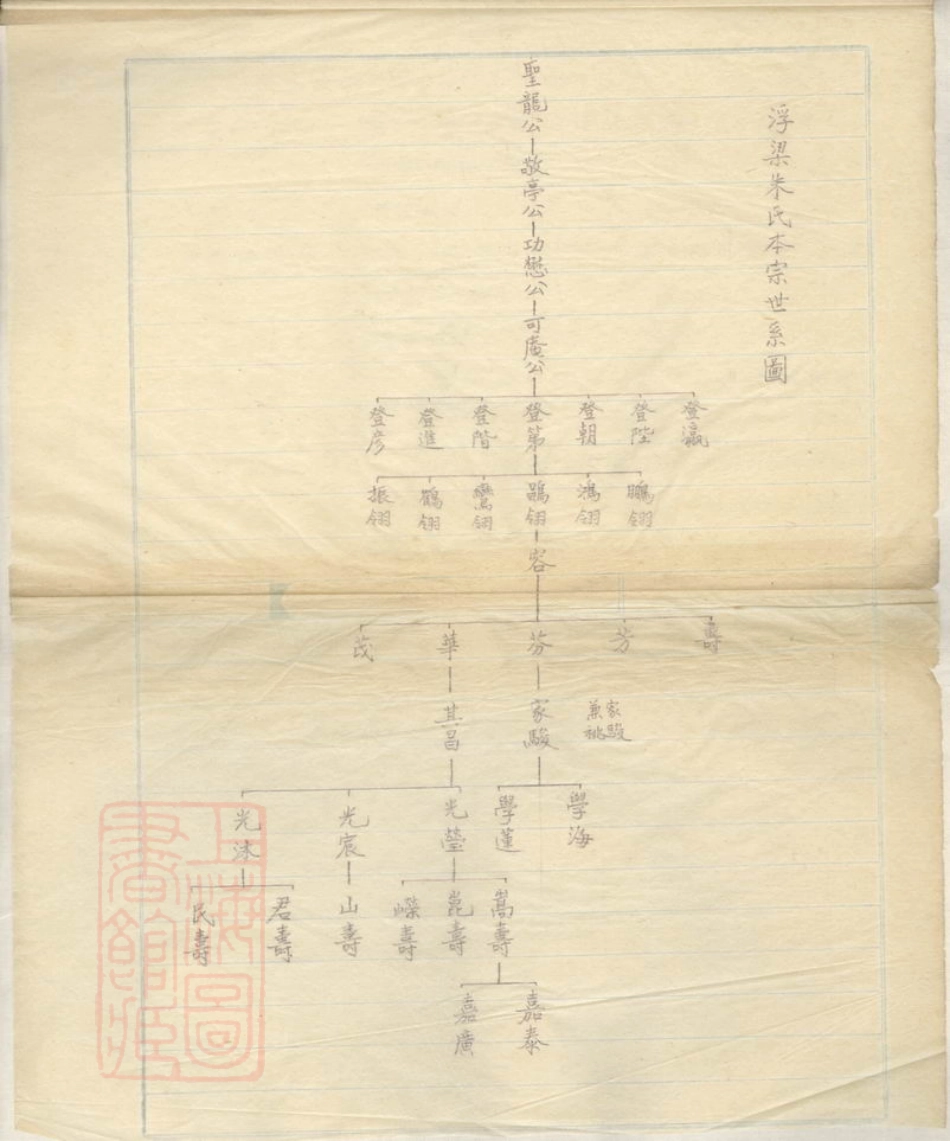 浮梁朱氏本宗世系圖
聖龍公
敬亭公
功懋公
可廣公
登瀛
登陛
登朝
登第
登階
登進
登彦
鵬翎
鴻翎
鶚翎
鸞翎
鶴翎
振翎
容
壽
芳
芬
華
茂
家駿
兼祧
家駿
其昌
學海
學蓮
光瑩
光宸
光沐
嵩壽
崑壽
嶸壽
山壽
君壽
民壽
嘉泰
嘉廣
上海圖
書館藏